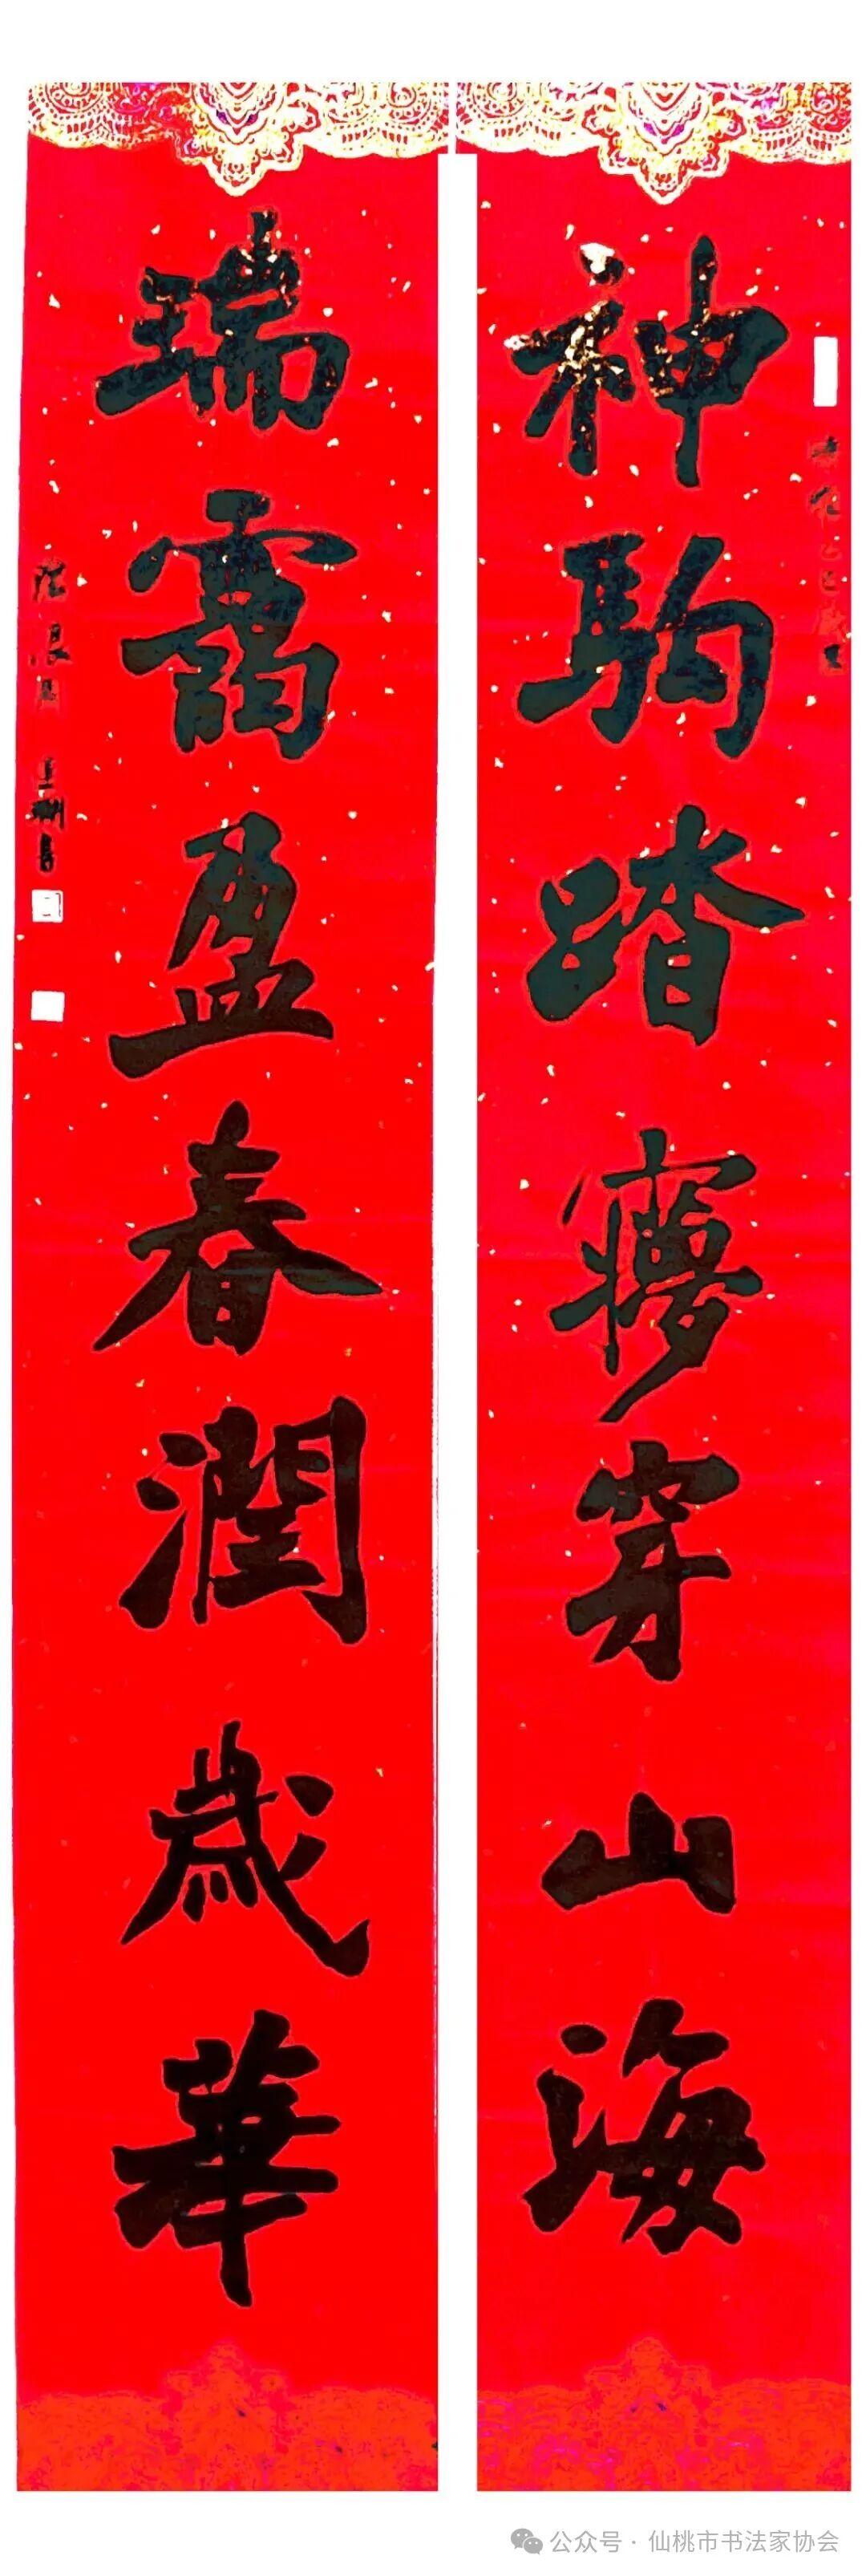 神駒踏寢穿山海
瑞靄盈春潤歲華
公众号 · 仙桃市书法家协会